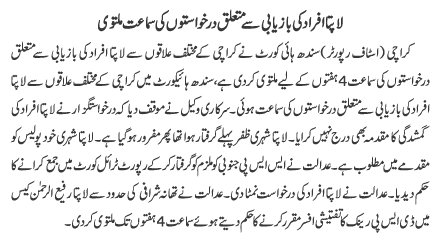 لاپتا افراد کی بازیابی سے متعلق درخواستوں کی سماعت ملتوی
کراچی (اسٹاف رپورٹر) سندھ ہائی کورٹ نے کراچی کے مختلف علاقوں سے لاپتا افراد کی بازیابی سے متعلق
درخواستوں کی سماعت 4 ہفتوں کے لیے ملتوی کردی ہے، سندھ ہائیکورٹ میں کراچی کے مختلف علاقوں سے لاپتا
افراد کی بازیابی سے متعلق درخواستوں کی سماعت ہوئی۔ سرکاری وکیل نے موقف دیا کہ درخواستگزار نے لاپتا افراد کی
گمشدگی کا مقدمہ بھی درج نہیں کرایا۔ لاپتا شہری ظفر پہلے گرفتار ہوا تھا پھر مفرور ہوگیا ہے۔ لاپتا شہری خود پولیس کو
مقدمے میں مطلوب ہے۔ عدالت نے ایس ایس پی جنوبی کو ملزم کو گرفتار کرکے رپورٹ ٹرائل کورٹ میں جمع کرانے کا
حکم دیدیا۔ عدالت نے لاپتا افراد کی درخواست نمٹا دی۔ عدالت نے تھانہ شرافی کی حدود سے لاپتا رفیع الرحمٰن کیس
میں ڈی ایس پی رینک کا تفتیشی افسر مقرر کرنے کا حکم دیتے ہوئے سماعت 4 ہفتوں تک ملتوی کردی۔